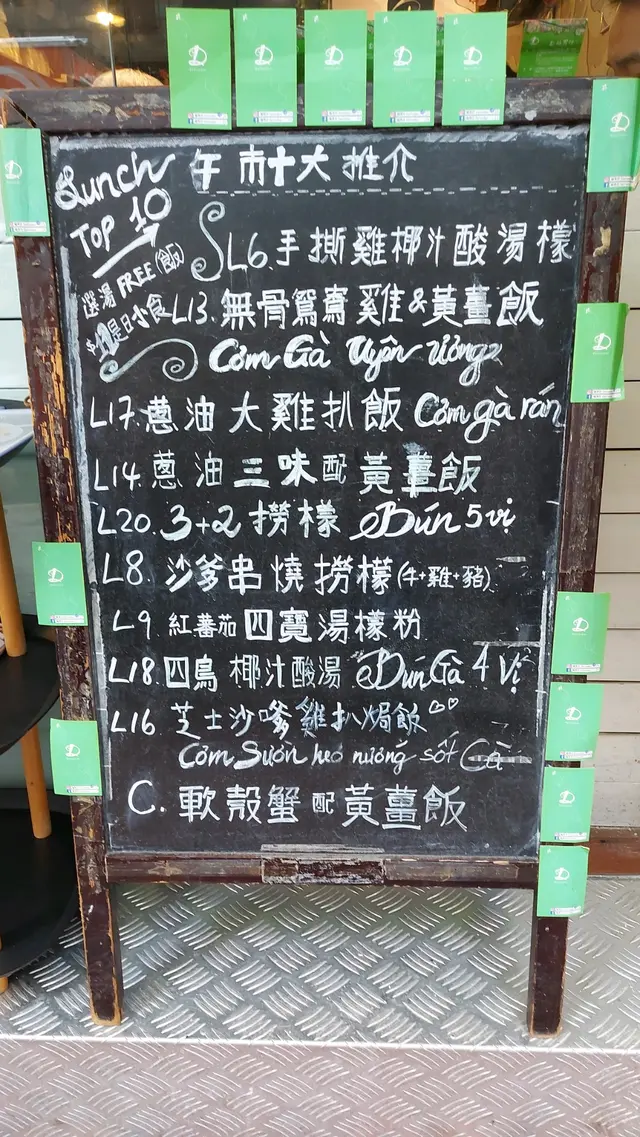 Lunch
TOP 10
午市十大推介
選湯 FREE (飯)
是日小食
L6. 手撕雞椰汁酸湯檬
L13. 無骨鴛鴦雞&黃薑飯
Cơm Gà Uyên ương
L17. 蔥油大雞扒飯 Cơm gà rán
L14. 蔥油三味配黃薑飯
L20. 3+2撈檬 Bún 5 vị
L8. 沙爹串燒撈檬 (牛+雞+豬)
L9 紅蕃茄四寶湯檬粉
L18. 四鳥椰汁酸湯 Bún Gà 4 Vị
L16 芝士沙嗲雞扒焗飯
Cơm Sườn heo nướng sốt Cà
C. 軟殼蟹配黃薑飯